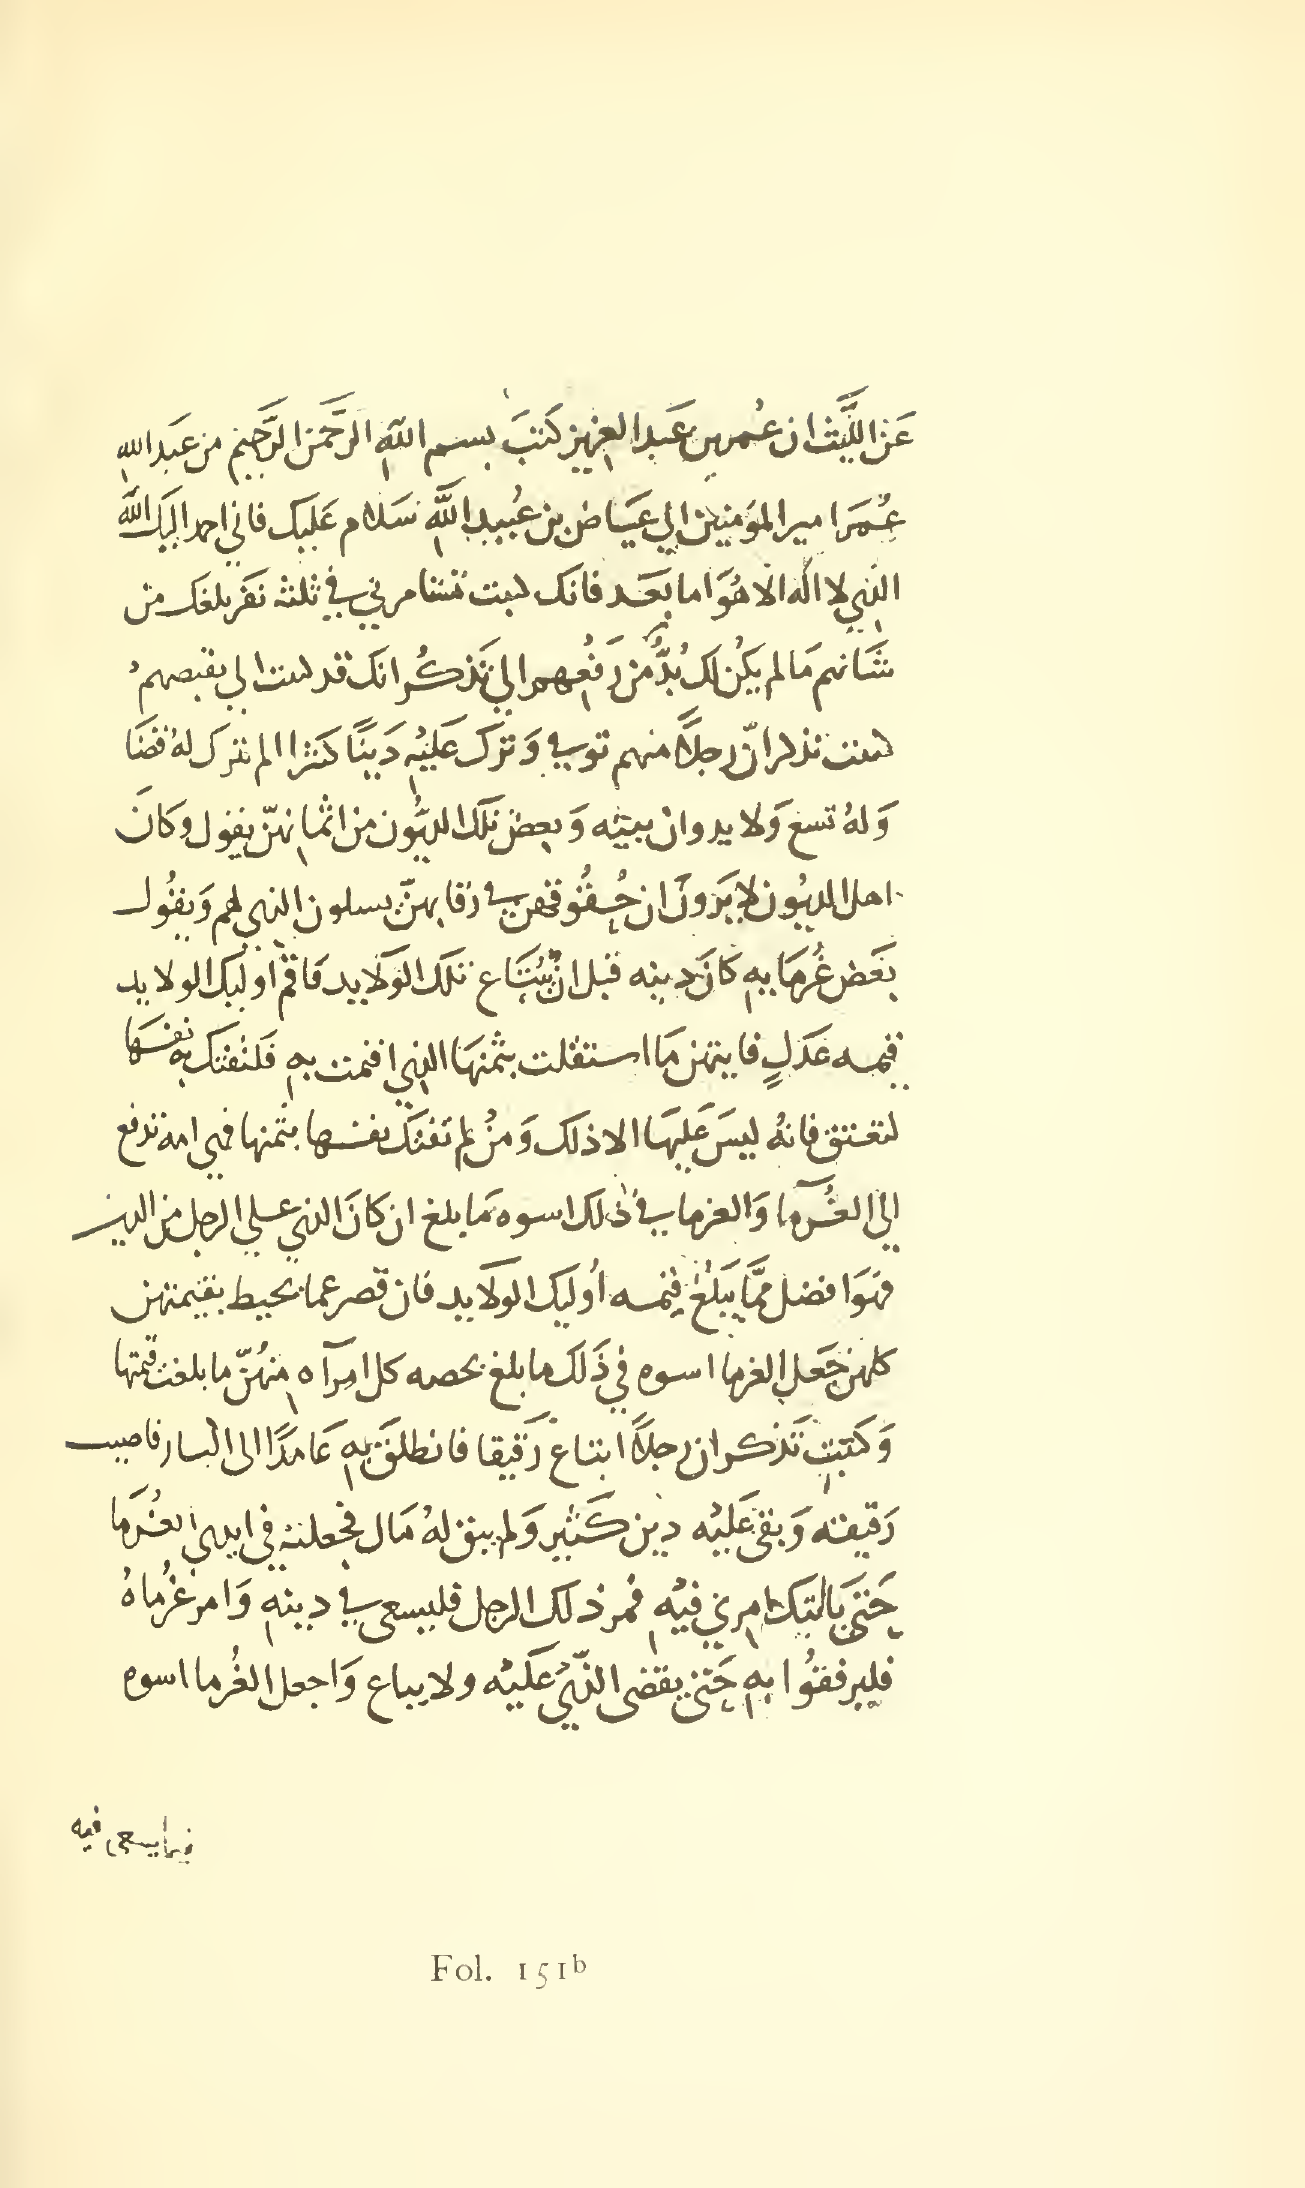 عَن اللَّيث ان عُمر بن عَبد العزيز كَتبَ بسم اللَّهِ الرَّحمٰن الرَّحيم من عَبد اللهِ
عُمَر امير المؤمنين الي عيَاض بن عُبيد اللَّهِ سَلام عَليك فاني احمد اليَك اللَّه
الذي لا اله الا هُوَ اما بَعَد فانك كتبت تستامرني في ثلثة نفَر بلغك من
شَانهم مَا لم يكُن لك بُدُّ مِن رَفعِهم الي تَذكُر انك قد كتبت الي بقصصهم
كتبت تذكر انّ رجلًا منهم توفي وَترَك عَليهِ دَينًا كثيرا لم يترك لهُ قضَا
وَلهُ تسع وَلايد وان ببيته وَبعض تلَك الديُون من اثمانهنّ يقول وكَانَ
اهل الديُون يَرونَ ان حُقُوقهن في رقَابهنّ يسلون الذي لهم وَيقُول
بَعَض غُرمَايهِ كَانَ دينه قبل ان تُبتَاع تلَك الوَلَايد فَاقم اوليك الولايد
قيمه عَدَلٍ فايتهن مَا استقلت بثمنهَا الذي اقمت بهِ فَلتفتَك بهِ نفسَها
لتعتق فانهُ ليسَ عَليهَا الا ذلك وَمَن لم تفتَك نفسها بثمنها فهي امه تدفع
الي الغُرمَا وَالغرما في ذلَك اسوه بمَا بلغ ان كانَ الذي علي الرجل من الدين
فهوَ افضل ممَّا يَبلُغ قيمه اُوليَك الوَلَايد فان قصر عما يحيط بقيمتهن
كلهن جَعَل الغرما اسوه في ذَلَك ما بلغ بحصه كل امرآه مِنهُنّ ما بلغت قيمتها
وَكتَبت تَذكر ان رجلًا ابتاع رَقيقا فانطلق بهِ عَامَدًا الى اليسار فاصيب
رَقيقه وَبقى عَليهُ دين كَثيَر وَلم يبق لهُ مَال فجعلته في ايدي الغُرمَا
حَتي يَاتيَك امرِي فيهِ فمر ذلك الرجل فليسعى في دينهِ وَامر غُرماهُ
فليرفقُوا بهِ حَتى يقضى الذّي عَليهُ ولا يباع وَاجعل الغُرما اسوه
فيما يسعى فيه
Fol. 151b